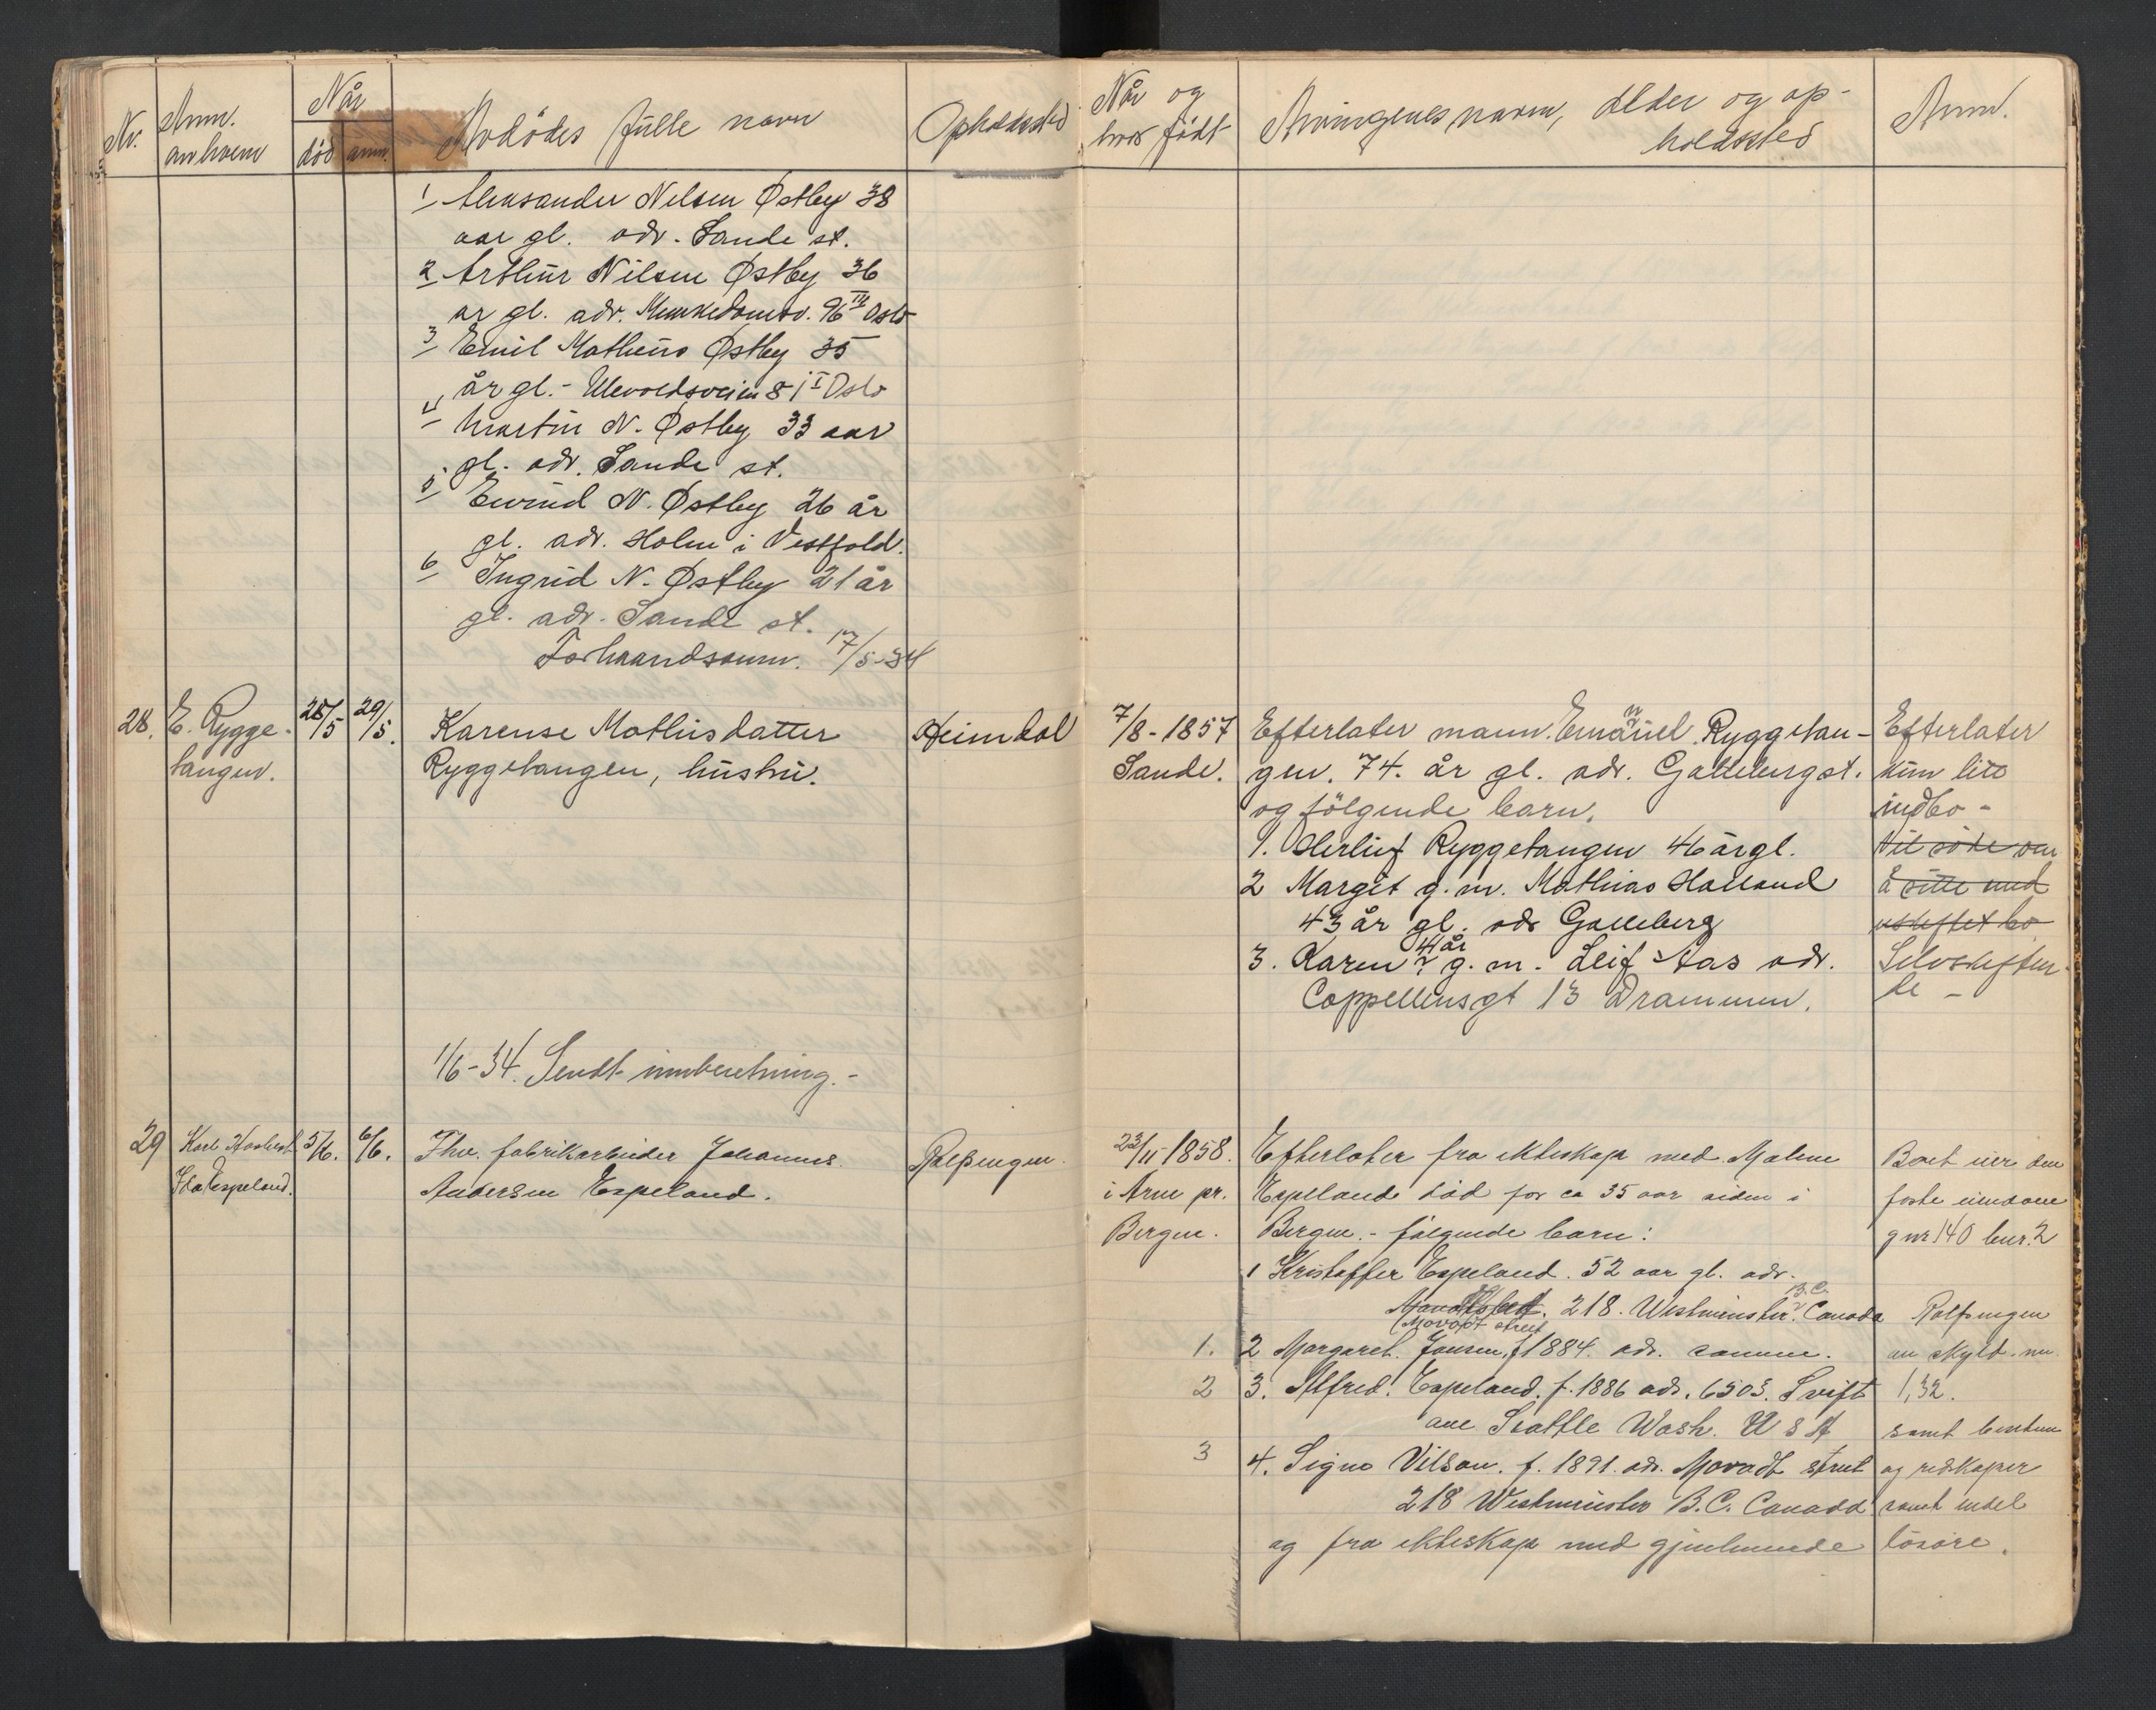 Nr.
Anm. av hvem
Når
død anm.
Avdødes fulle navn
Opholdssted
Når og
hvor født
Arvingenes navn, alder og op-
holdssted
Anm.
1 Aleksander Nilsen Østby 38
aar gl. adr. Sande st.
2 Arthur Nilsen Østby 36
ar gl. adr. Munkedamsv. 96 IV Oslo
3 Emil Matheus Østby 35
år gl. - Ulevoldsveien 81 I Oslo
4 Martin N. Østby 33 aar
gl. adr. Sande st.
5 Eivind N. Østby 26 år
gl. adr. Holm i Vestfold.
6 Ingrid N. Østby 21 år
gl. adr. Sande st.
Forhaandsanm. 17/5-34
28. E. Rygge-
tangen.
28/5 29/5.
Karense Mathisdatter
Ryggetangen, hustru.
Heimdal
7/8-1857
Sande.
Efterlater mann. Emanuel Ryggetan-
gen. 74. år gl. adr. Galleberg st.
og følgende barn.
1. Herlief Ryggetangen 46 år gl.
2 Margit g.m. Mathias Halland
43 år gl. adr Galleberg
3. Karen 41 år g.m. Leif Aas adr.
Coppellensgt 13 Drammen.
Efterlater
kun litt
indbo -
Vil søke om
å sitte med
uskiftet bo
Selvskiften-
de -
1/6-34. Sendt innberetning. -
29
Karl
Espeland.
5/6. 6/6.
Fhv. fabrikarbeider Johannes
Andersen Espeland.
Rølpungen.
23/11-1858.
i Arne pr.
Bergen.
Efterlater fra ekteskap med Malene
Espeland død for ca 35 aar siden i
Bergen. - følgende barn:
1 Kristoffer Espeland. 52 aar gl. adr.
218. Westminster B.C. Canada
Movadt street
1. 2 Margaret Jonsen, f 1884. adr. samme.
2 3. Alfred. Espeland. f. 1886 adr. 6503. Svift
ave Seattle Wash. U S A
3 4. Signe Vilson. f. 1891. adr. Movadt street
218 Westminster B.C. Canada
og fra ekteskap med gjenlevende
Boet eier den
faste eiendom
gnr 140 bnr. 2
Rølpungen
av skyld. m.
1,32.
samt
og redskaper
samt endel
løsøre.